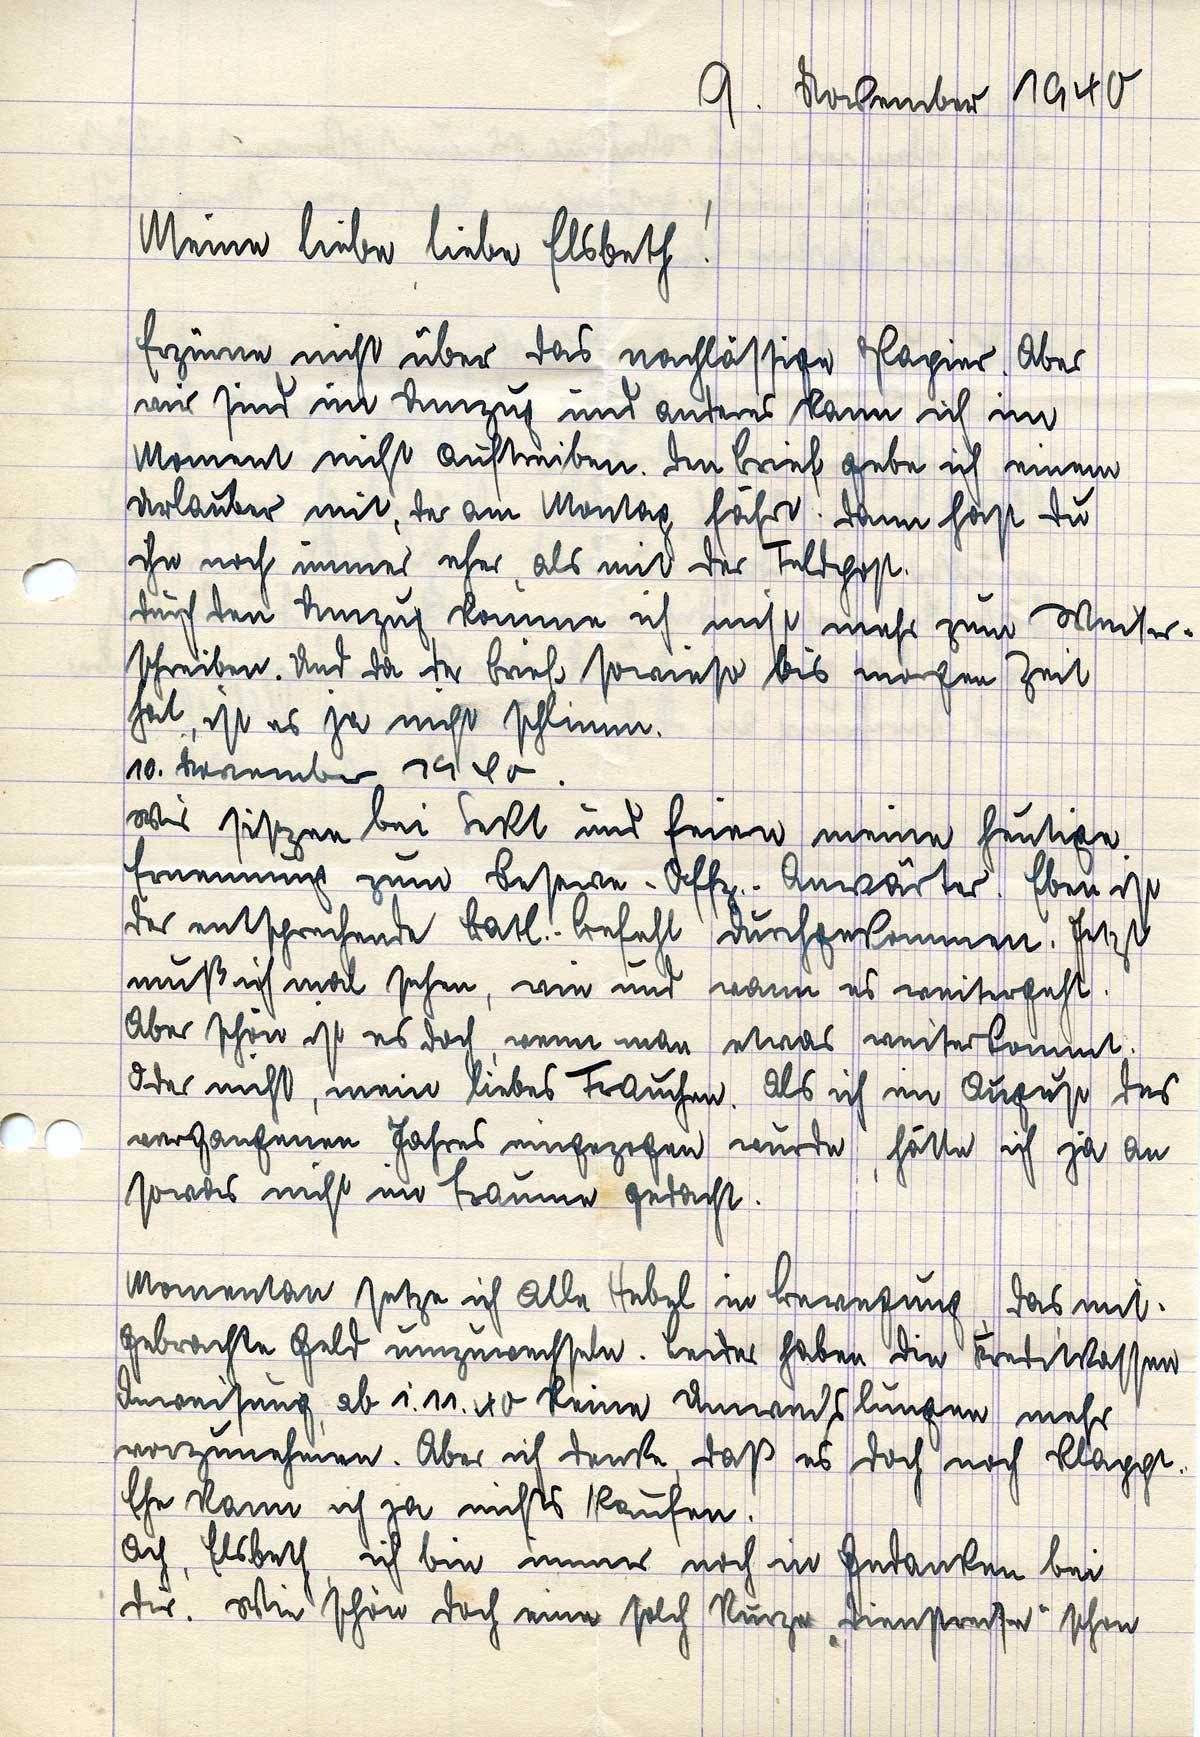 9. November 1940
Meine liebe liebe Elsbeth!
Erzürne nicht über das nachlässige Papier. Aber
wir sind im Umzug und anderes kann ich im
Moment nicht auftreiben. Den Brief gebe ich einem
Urlauber mit, der am Montag fährt. Dann hast Du
ihn noch immer eher, als mit der Feldpost.
Durch den Umzug komme ich nicht mehr zum Weiter-
schreiben. Und da der Brief sowieso bis morgen Zeit
hat, ist es ja nicht schlimm.
10. November 1940.
Wir sitzen bei Sekt und feiern meine heutige
Ernennung zum Reserve-Offz.-Anwärter. Eben ist
der entsprechende Batl.-Befehl durchgekommen. Jetzt
muß ich mal sehen, wie und wann es weitergeht.
Aber schön ist es doch, wenn man etwas weiterkommt.
Oder nicht, mein liebes Frauchen. Als ich im August des
vergangenen Jahres eingezogen wurde, hätte ich ja an
sowas nicht im Traume gedacht.
Momentan setze ich alle Hebel in Bewegung, das mit-
gebrachte Geld umzuwechseln. Leider haben die Kreditkassen
Anweisung, ab 1.11.40 keine Umwechslungen mehr
vorzunehmen. Aber ich denke, daß es doch noch klappt.
Ehe kann ich ja nichts kaufen.
Ach, Elsbeth, ich bin immer noch in Gedanken bei
Dir. Wie schön doch eine solch kurze „Dienstreise" schon